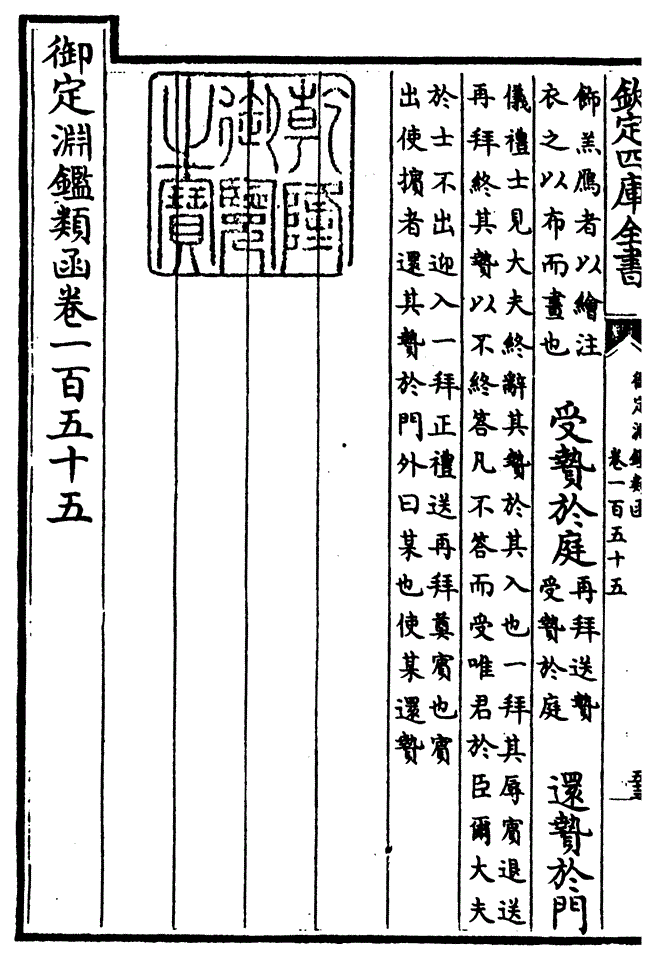 欽定四庫全書
御定淵鑑類函
卷一百五十五
飾羔鴈者以繪注
衣之以布而畫也
受贄於庭
再拜送贄
受贄於庭
還贄於門
儀禮士見大夫終辭其贄於其入也一拜其辱賓退送
再拜終其贄以不終答凡不答而受唯君於臣爾大夫
於士不出迎入一拜正禮送再拜尊賓也賓
出使擯者還其贄於門外曰某也使某還贄
乾隆御覽之寶
御定淵鑑類函卷一百五十五